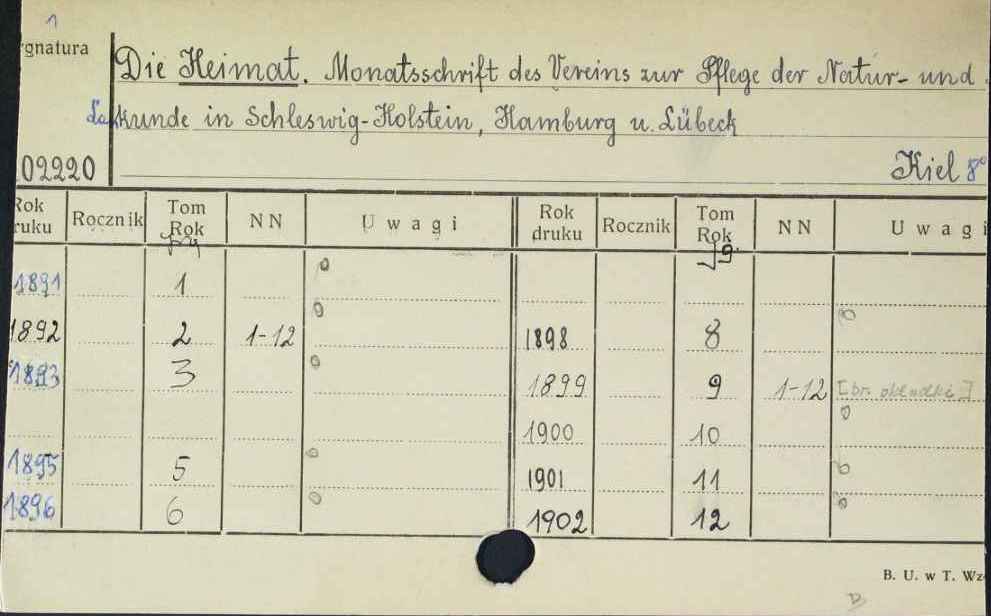 1
gnatura
Die Heimat. Monatsschrift des Vereins zur Pflege der Natur- und
Landeskunde in Schleswig-Holstein, Hamburg u. Lübeck
02220
Kiel 8°
Rok ruku Rocznik Tom Rok NN Uwagi Rok druku Rocznik Tom Rok NN Uwagi
Jg.
1891 1
1892 2 1-12 1898 8
1893 3 1899 9 1-12 [br. okładki]
1900 10
1895 5 1901 11
1896 6 1902 12
B. U. w T. Wz